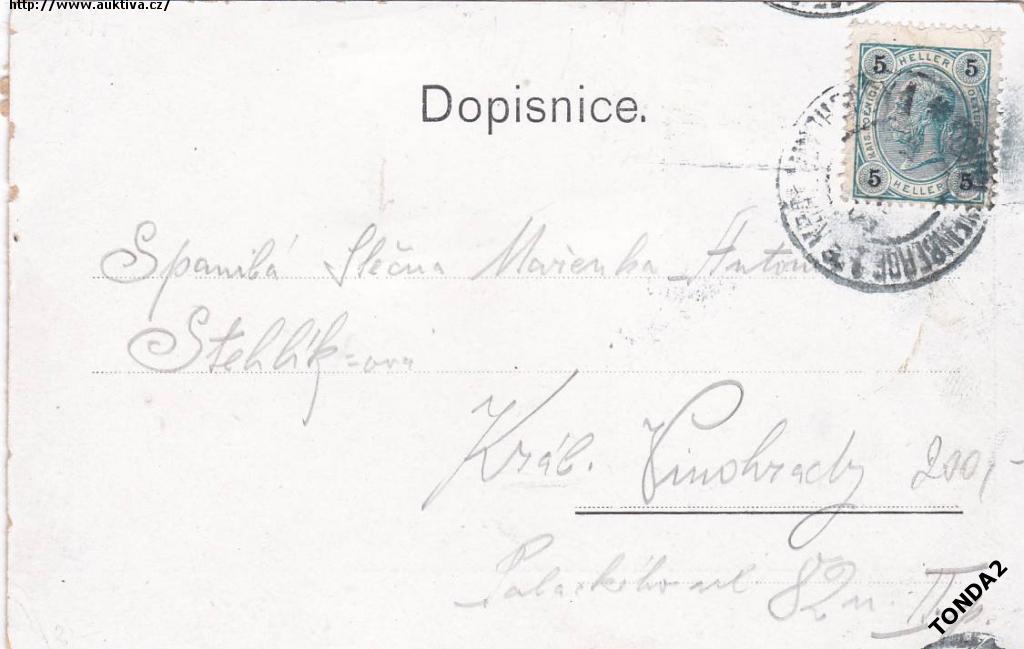 http://www.auktiva.cz/
Dopisnice.
5 HELLER 5
5 HELLER 5
Slečna Mařenka
Stehlík-ova
Král. Vinohrady 200,-
Palackého ul 82n. II p.
TONDA2